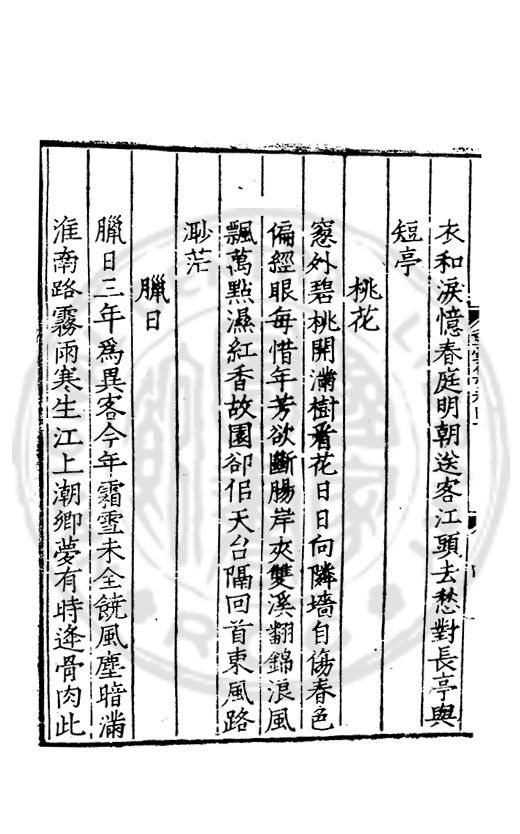 衣和淚憶春庭明朝送客江頭去愁對長亭與
短亭
桃花
窓外碧桃開滿樹看花日日向隣墻自傷春色
偏經眼每惜年芳欲斷腸岸夾雙溪翻錦浪風
飄萬點濕紅香故園卻佀天台隔回首東風路
渺茫
臘日
臘日三年爲異客今年霜雪未全饒風塵暗滿
淮南路霧雨寒生江上潮鄉夢有時逢骨肉此